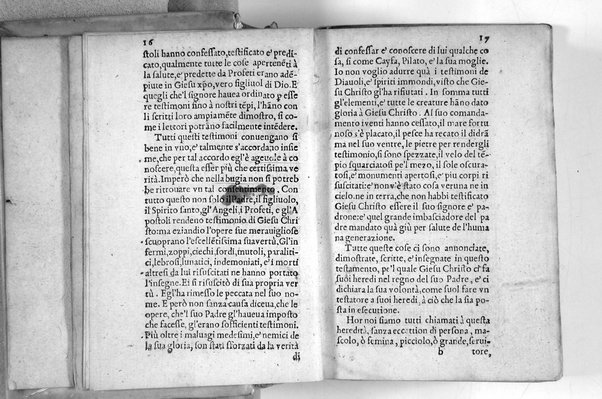 16
stoli hanno confessato, testificato e' predi
cato, qualmente tutte le cose apertenēti à
la salute, e' predette da Profeti erano adē-
piute in Giesu xp̄o, vero figliuol di Dio. E
quegli che'l signore hauea ordinato p esse
re testimoni sino à nostri tēpi, l'hāno con
li scritti loro ampiamēte dimostro, si co-
me i lettori potrāno facilmente intēdere.
Tutti questi testimoni conuengano si
bene in vno, e' talmente s'accordano insie
me, che per tal accordo egl'è ageuole à co
noscere, questa esser più che certissima ve
rità. Imperò che nella bugia non si potreb
be ritrouare vn tal consentimento. Con
tutto questo non solo il Padre, il figliuolo,
il Spirito santo, gl'Angeli, i Profeti, e gl'A
postoli rendeno testimonio di Giesu Chri
sto: ma eziandio l'opere sue merauigliose
scuoprano l'escellētissima sua vertù. Gl'in
fermi, zoppi, ciechi, sordi, mutoli, paraliti-
ci, lebrosi, lunatici, indemoniati, e' i morti
altresi da lui risuscitati ne hanno portato
l'insegne. Ei si risuscitò di sua propria ver
tù. Egl'ha rimesso le peccata nel suo no-
me. E però non sanza causa diceua, che le
opere, che'l suo Padre gl'haueua imposto
che facesse, gl'erano sofficienti testimoni.
Più oltre i maluagi medesimi, e' nemici de
la sua gloria, son stati sforzati da la verità
di
17
di confessar e' conoscere di lui qualche co
sa, si come Cayfa, Pilato, e' la sua moglie.
Io non voglio adurre quà i testimoni de
Diauoli, e' spiriti immondi, visto che Gie-
su Christo gl'ha rifiutati. In somma tutti
gl'elementi, e' tutte le creature hāno dato
gloria à Giesu Christo. Al suo comanda-
mento i venti hanno cessato, il mare fortu
noso s'è placato, il pesce ha recato il didrā
ma nel suo ventre, le pietre per rendergli
testimonio, si sono spezzate, il velo del tē-
pio squarciatosi pe'l mezo, il sole oscura-
tosi, e' monumenti apertosi, e' piu corpi ri
suscitati: e' non v'è stato cosa veruna ne in
cielo, ne in terra, che non habbi testificato
Giesu Christo essere il suo signore e' pa-
drone: e' quel grande imbasciadore del pa
dre mandato quà giù per salute de l'huma
na generazione.
Tutte queste cose ci sono annonciate,
dimostrate, scritte, e' insegnate in questo
testamento, pe'l quale Giesu Christo c'fa
suoi heredi nel regno del suo Padre, e' ci
dichiara la sua volontà, come suol fare vn
testatore a suoi heredi, à ciò che la sia pos
ta in esecutione.
Hor noi siamo tutti chiamati à questa
heredità, sanza eccettion di persona, ma-
scolo, ò femina, picciolo, ò grande, serui-
b tore,